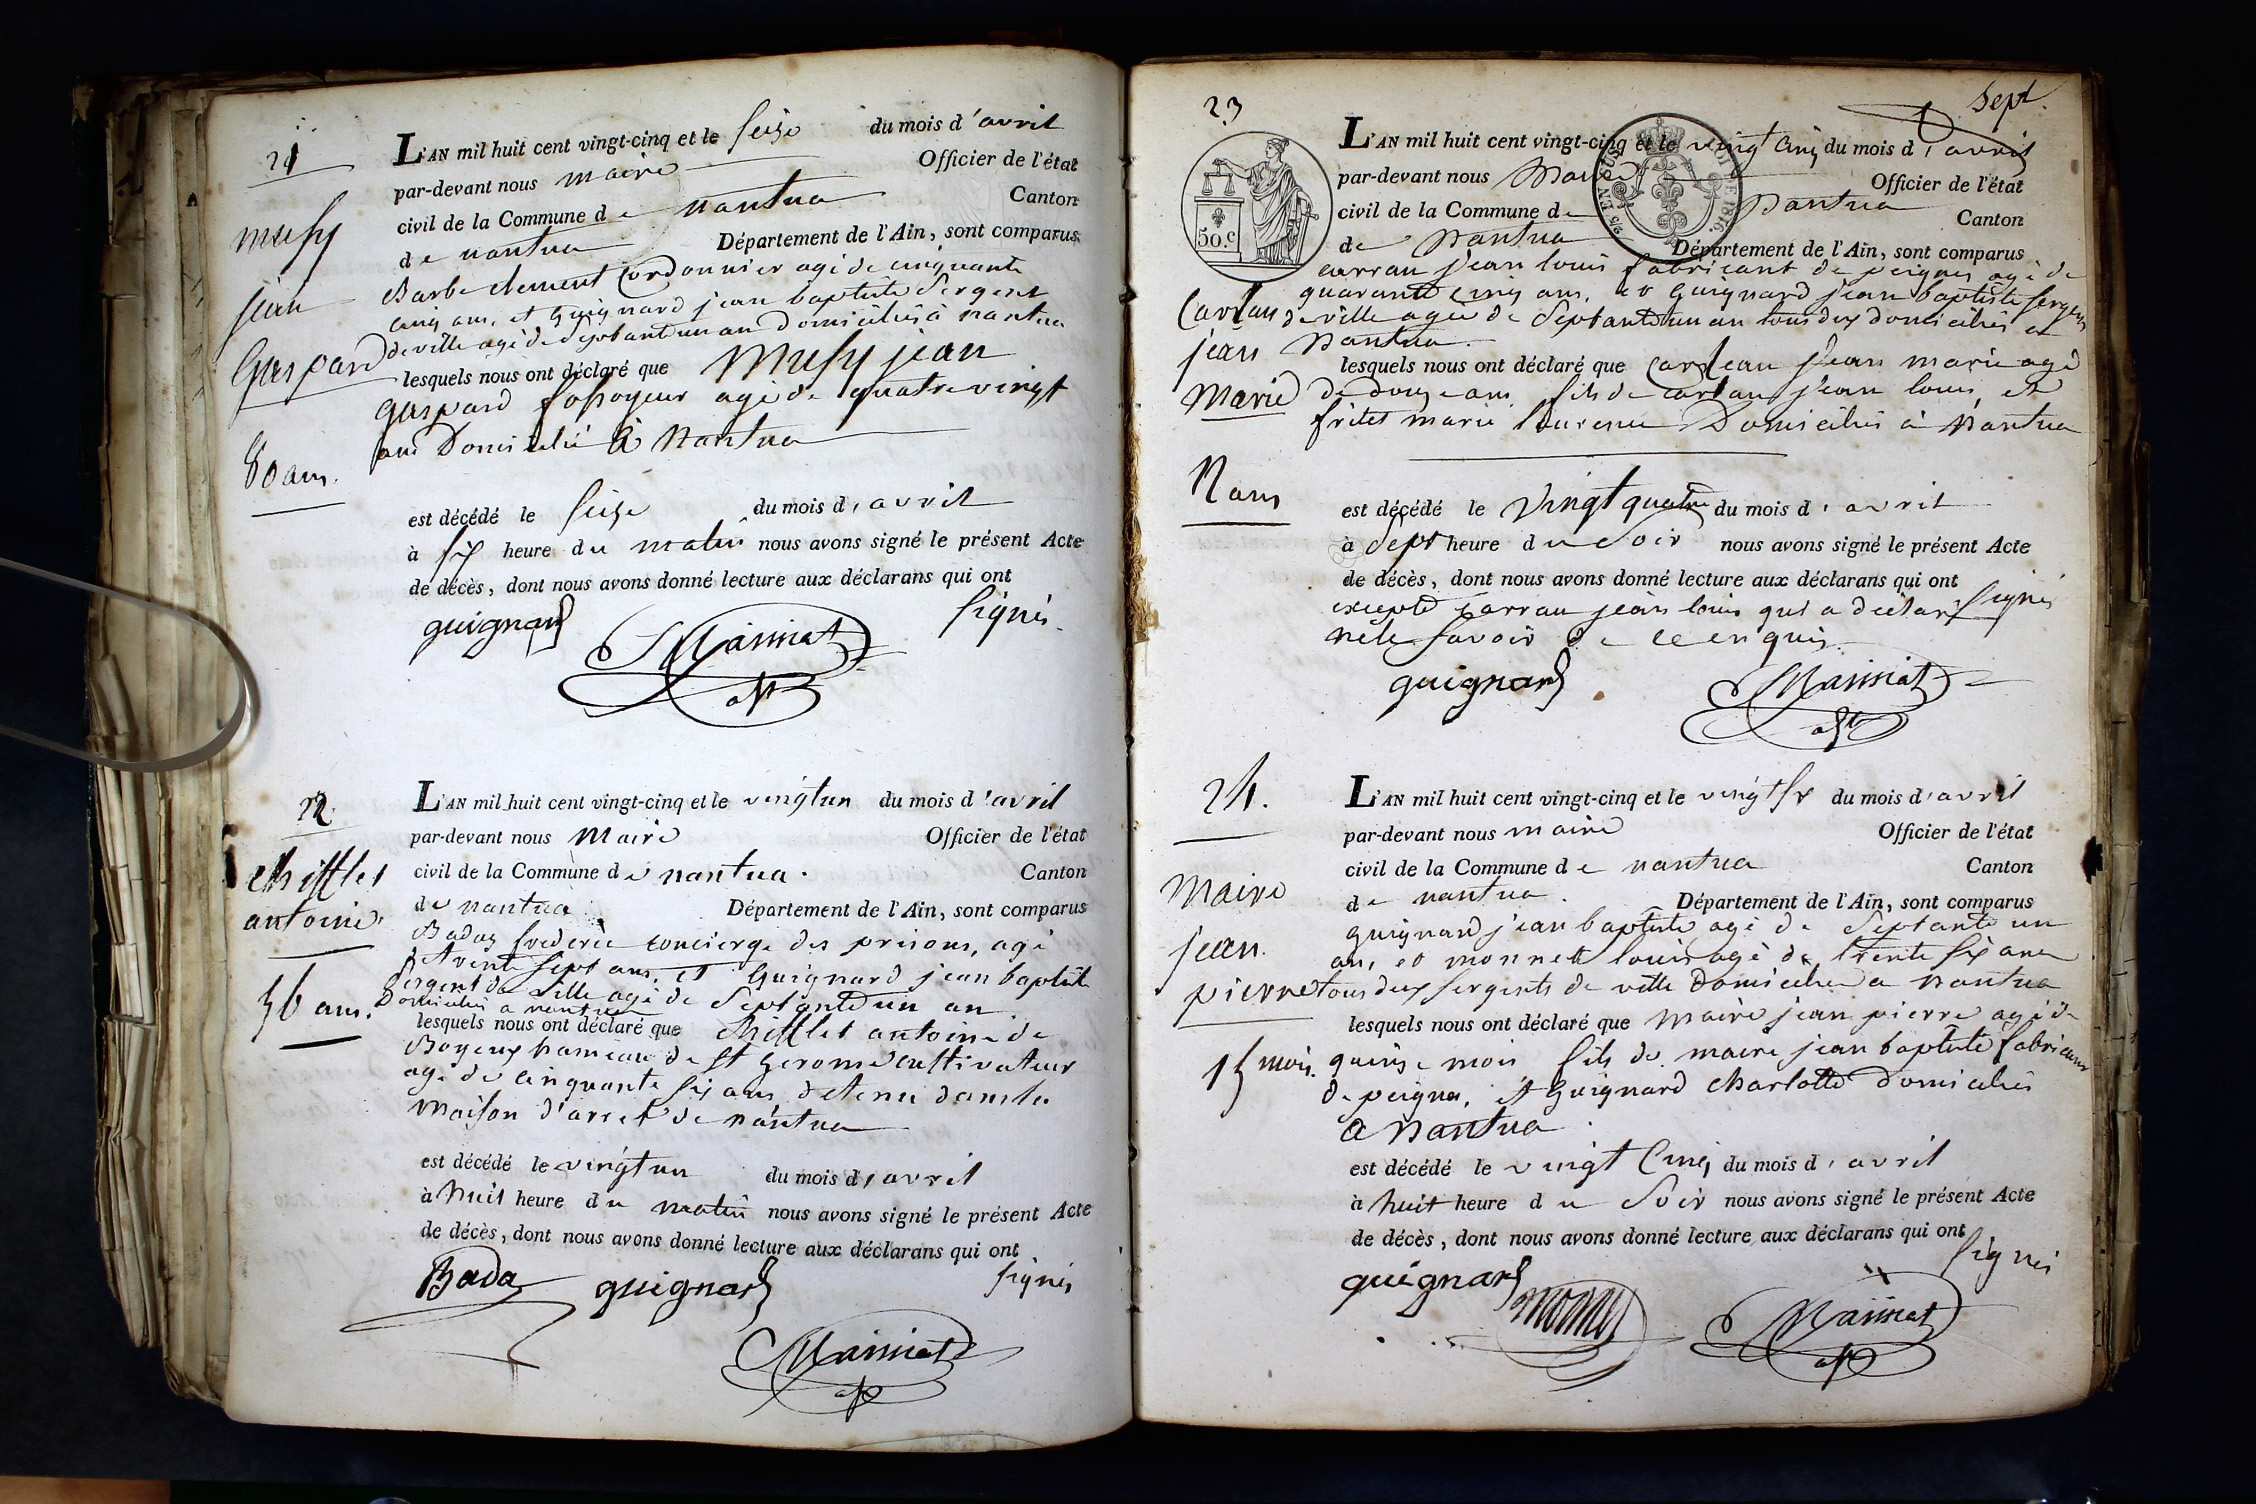 21
musy
jean
Gaspard
80 ans.
L'AN mil huit cent vingt-cinq et le seize du mois d'avril
par-devant nous maire Officier de l'état
civil de la Commune de nantua Canton
de nantua Département de l'Ain, sont comparus
Barbe clement Cordonnier agé de cinquante
cinq ans, et Guignard jean baptiste Sergent
de ville agé de septante un an domiciliés à nantua
lesquels nous ont déclaré que Musy jean
gaspard fossoyeur agé de quatre vingt
ans Domicilié à Nantua
est décédé le seize du mois d'avril
à six heure du matin nous avons signé le présent Acte
de décès, dont nous avons donné lecture aux déclarans qui ont
signés.
guignard
22
chifflet
antoine
56 ans.
L'AN mil huit cent vingt-cinq et le vingt un du mois d'avril
par-devant nous Maire Officier de l'état
civil de la Commune de nantua. Canton
de nantua Département de l'Ain, sont comparus
Badaz frederic concierge des prisons, agé
de trente sept ans, et Guignard jean baptiste
Sergent de ville agé de Septante un an
Domiciliés a nantua
lesquels nous ont déclaré que chifflet antoine de
Boyeux hameau de St Gerome cultivateur
agé de cinquante six ans detenu dans la
maison d'arret de nantua
est décédé le vingt un du mois d'avril
à huit heure du matin nous avons signé le présent Acte
de décès, dont nous avons donné lecture aux déclarans qui ont
signés
Badaz guignard
Sept.
23
50.C
Carlau
jean
Marie
12 ans
L'AN mil huit cent vingt-cinq et le vingt cinq du mois d'avril
par-devant nous Maire Officier de l'état
civil de la Commune de Nantua Canton
de Nantua Département de l'Ain, sont comparus
carrau jean louis fabricant de peignes agé de
quarante cinq ans, et Guignard jean baptiste sergent
de ville agée de Septante un an tous deux domiciliés a
Nantua.
lesquels nous ont déclaré que jean marie agé
de douze ans fils de carlau jean louis, et
marie laurence Domiciliés à Nantua
est décédé le Vingt quatre du mois d'avril
à Sept heure du Soir nous avons signé le présent Acte
de décès, dont nous avons donné lecture aux déclarans qui ont
signés
excepté carrau jean louis qui a déclaré
ne le savoir de ce enquis.
guignard
24.
Maire
jean
pierre
15 mois.
L'AN mil huit cent vingt-cinq et le vingt six du mois d'avril
par-devant nous maire Officier de l'état
civil de la Commune de nantua Canton
de nantua. Département de l'Ain, sont comparus
guignard jean baptiste agé de Septante un
an, et monnet louis agé de trente six ans
tous deux sergents de ville Domiciliés a Nantua
lesquels nous ont déclaré que Maire jean pierre agé de
quinze mois fils de maire jean baptiste fabricant
de peignes, et Guignard charlotte Domiciliés
a Nantua.
est décédé le vingt cinq du mois d'avril
à huit heure du Soir nous avons signé le présent Acte
de décès, dont nous avons donné lecture aux déclarans qui ont
signés
guignard
monnet